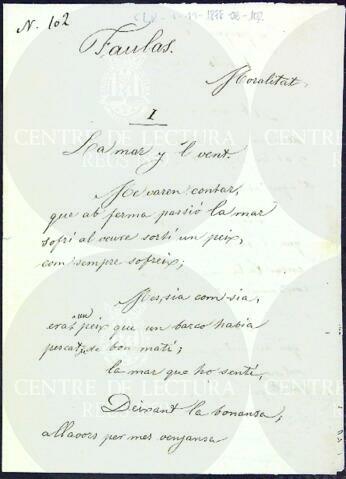 N. 102
Faulas.
Moralitat.
I
La mar y 'l vent.
Me varen contar,
que ab ferma passió la mar
sofrí al veure sortí un peix,
com sempre sofreix;
Mes, sia com sia,
era un peix que un barco habia
pescat de bon matí;
la mar que ho sentí,
Deixant la bonansa,
allavors per mes venjansa
CENTRE DE LECTURA
REUS
CENTRE DE LECTURA
REUS